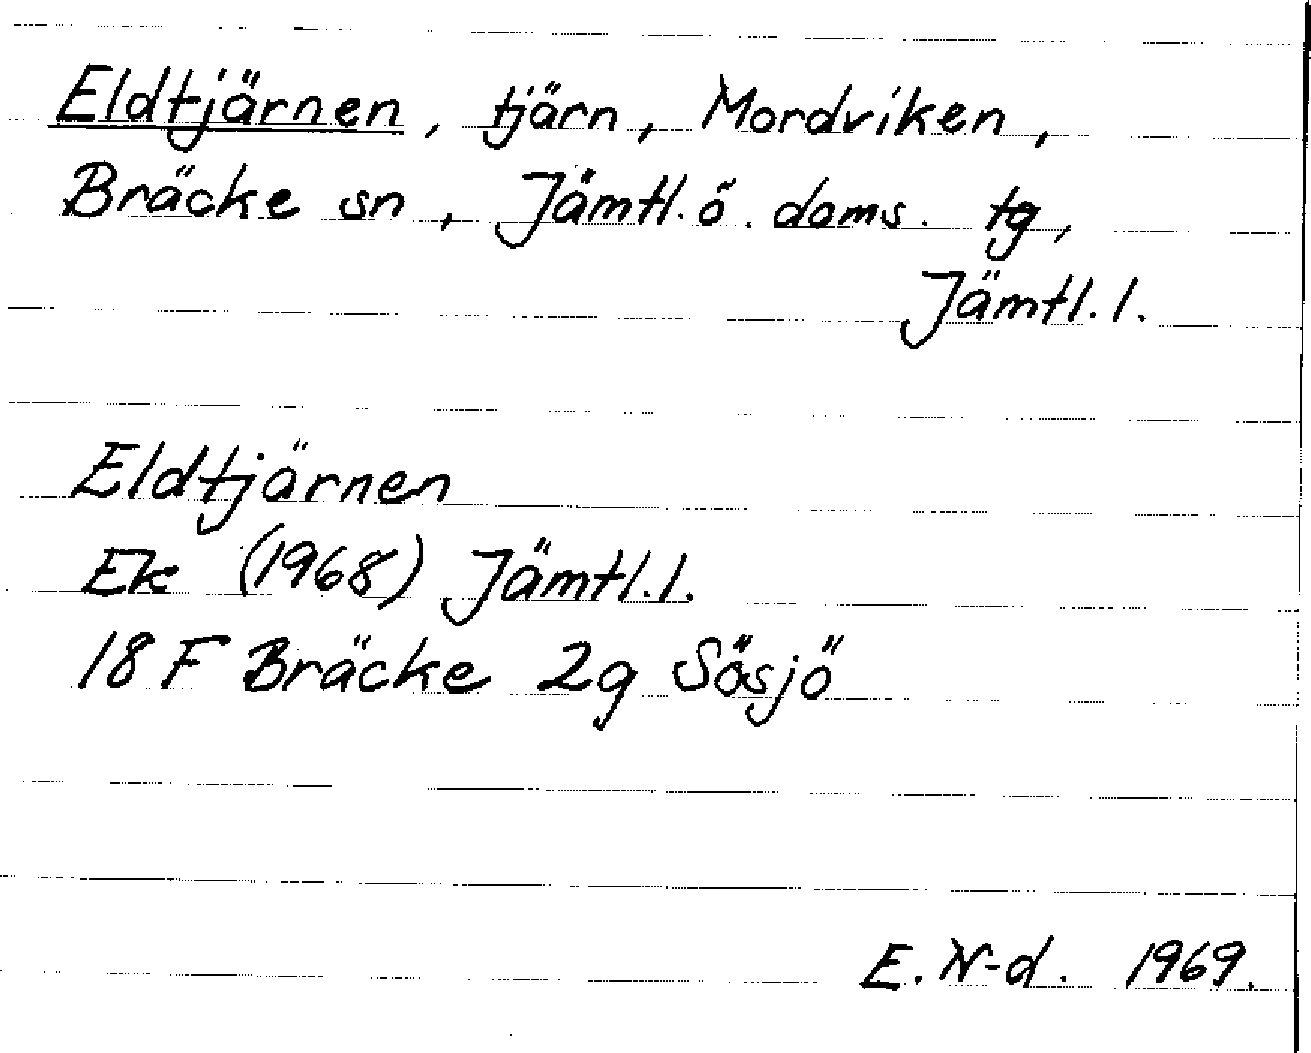 Eldtjärnen, tjärn, Mordviken,
Bräcke sn, Jämtl. ö. doms. tg,
Jämtl. l.
Eldtjärnen
Ek (1968) Jämtl. l.
18 F Bräcke 2g Sösjö
E. N-d. 1969.